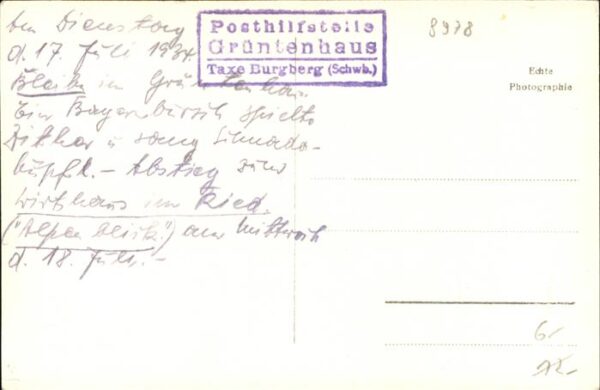 Am Dienstag
d. 17. Juli 1934.
Bleibe im Grüntenhaus.
Ein Bayernbursch spielte
Zither u. sang Schnada-
hüpfl. – Abstieg zum
Wirtshaus im Ried.
("Alpenblick") am Mittwoch
d. 18. Juli. –
Posthilfstelle
Grüntenhaus
Taxe Burgberg (Schwb.)
8978
Echte
Photographie
6.-